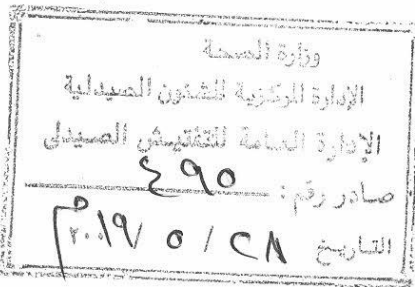 وزارة الصحة
الإدارة المركزية للشئون الصيدلية
الإدارة العامة للتفتيش الصيدلى
صادر رقم : ٤٩٥
التاريخ ٢٨ / ٥ / ٢٠١٩م